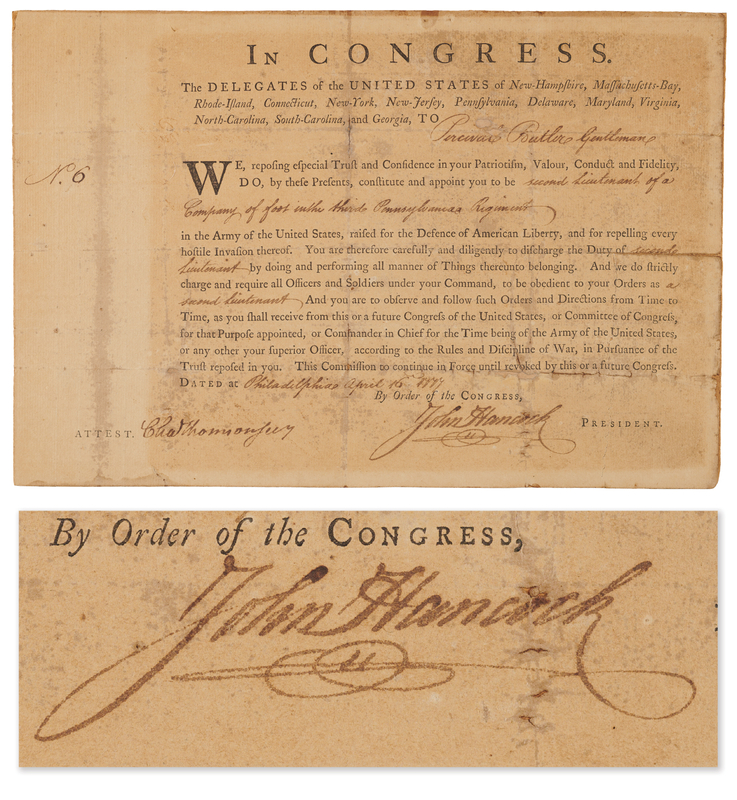 In CONGRESS.
The DELEGATES of the UNITED STATES of New-Hampſhire, Maſſachuſetts-Bay,
Rhode-Iſland, Connecticut, New-York, New-Jerſey, Pennſylvania, Delaware, Maryland, Virginia,
North-Carolina, South-Carolina, and Georgia, TO
Percival Butler Gentleman
N.º 6
WE, repoſing eſpecial Truſt and Confidence in your Patriotiſm, Valour, Conduct and Fidelity,
DO, by theſe Preſents, conſtitute and appoint you to be second Lieutenant of a
Company of foot in the third Pennsylvania Regiment
in the Army of the United States, raiſed for the Defence of American Liberty, and for repelling every
hoſtile Invaſion thereof. You are therefore carefully and diligently to diſcharge the Duty of second
Lieutenant by doing and performing all manner of Things thereunto belonging. And we do ſtrictly
charge and require all Officers and Soldiers under your Command, to be obedient to your Orders as a
second Lieutenant And you are to obſerve and follow ſuch Orders and Directions from Time to
Time, as you ſhall receive from this or a future Congreſs of the United States, or Committee of Congreſs,
for that Purpoſe appointed, or Commander in Chief for the Time being of the Army of the United States,
or any other your ſuperior Officer, according to the Rules and Diſcipline of War, in Purſuance of the
Truſt repoſed in you. This Commiſſion to continue in Force until revoked by this or a future Congreſs.
DATED at Philadelphia April 16th 1777
By Order of the CONGRESS,
John Hancock PRESIDENT.
ATTEST. Chaˢ Thomson secy
By Order of the CONGRESS,
John Hancock